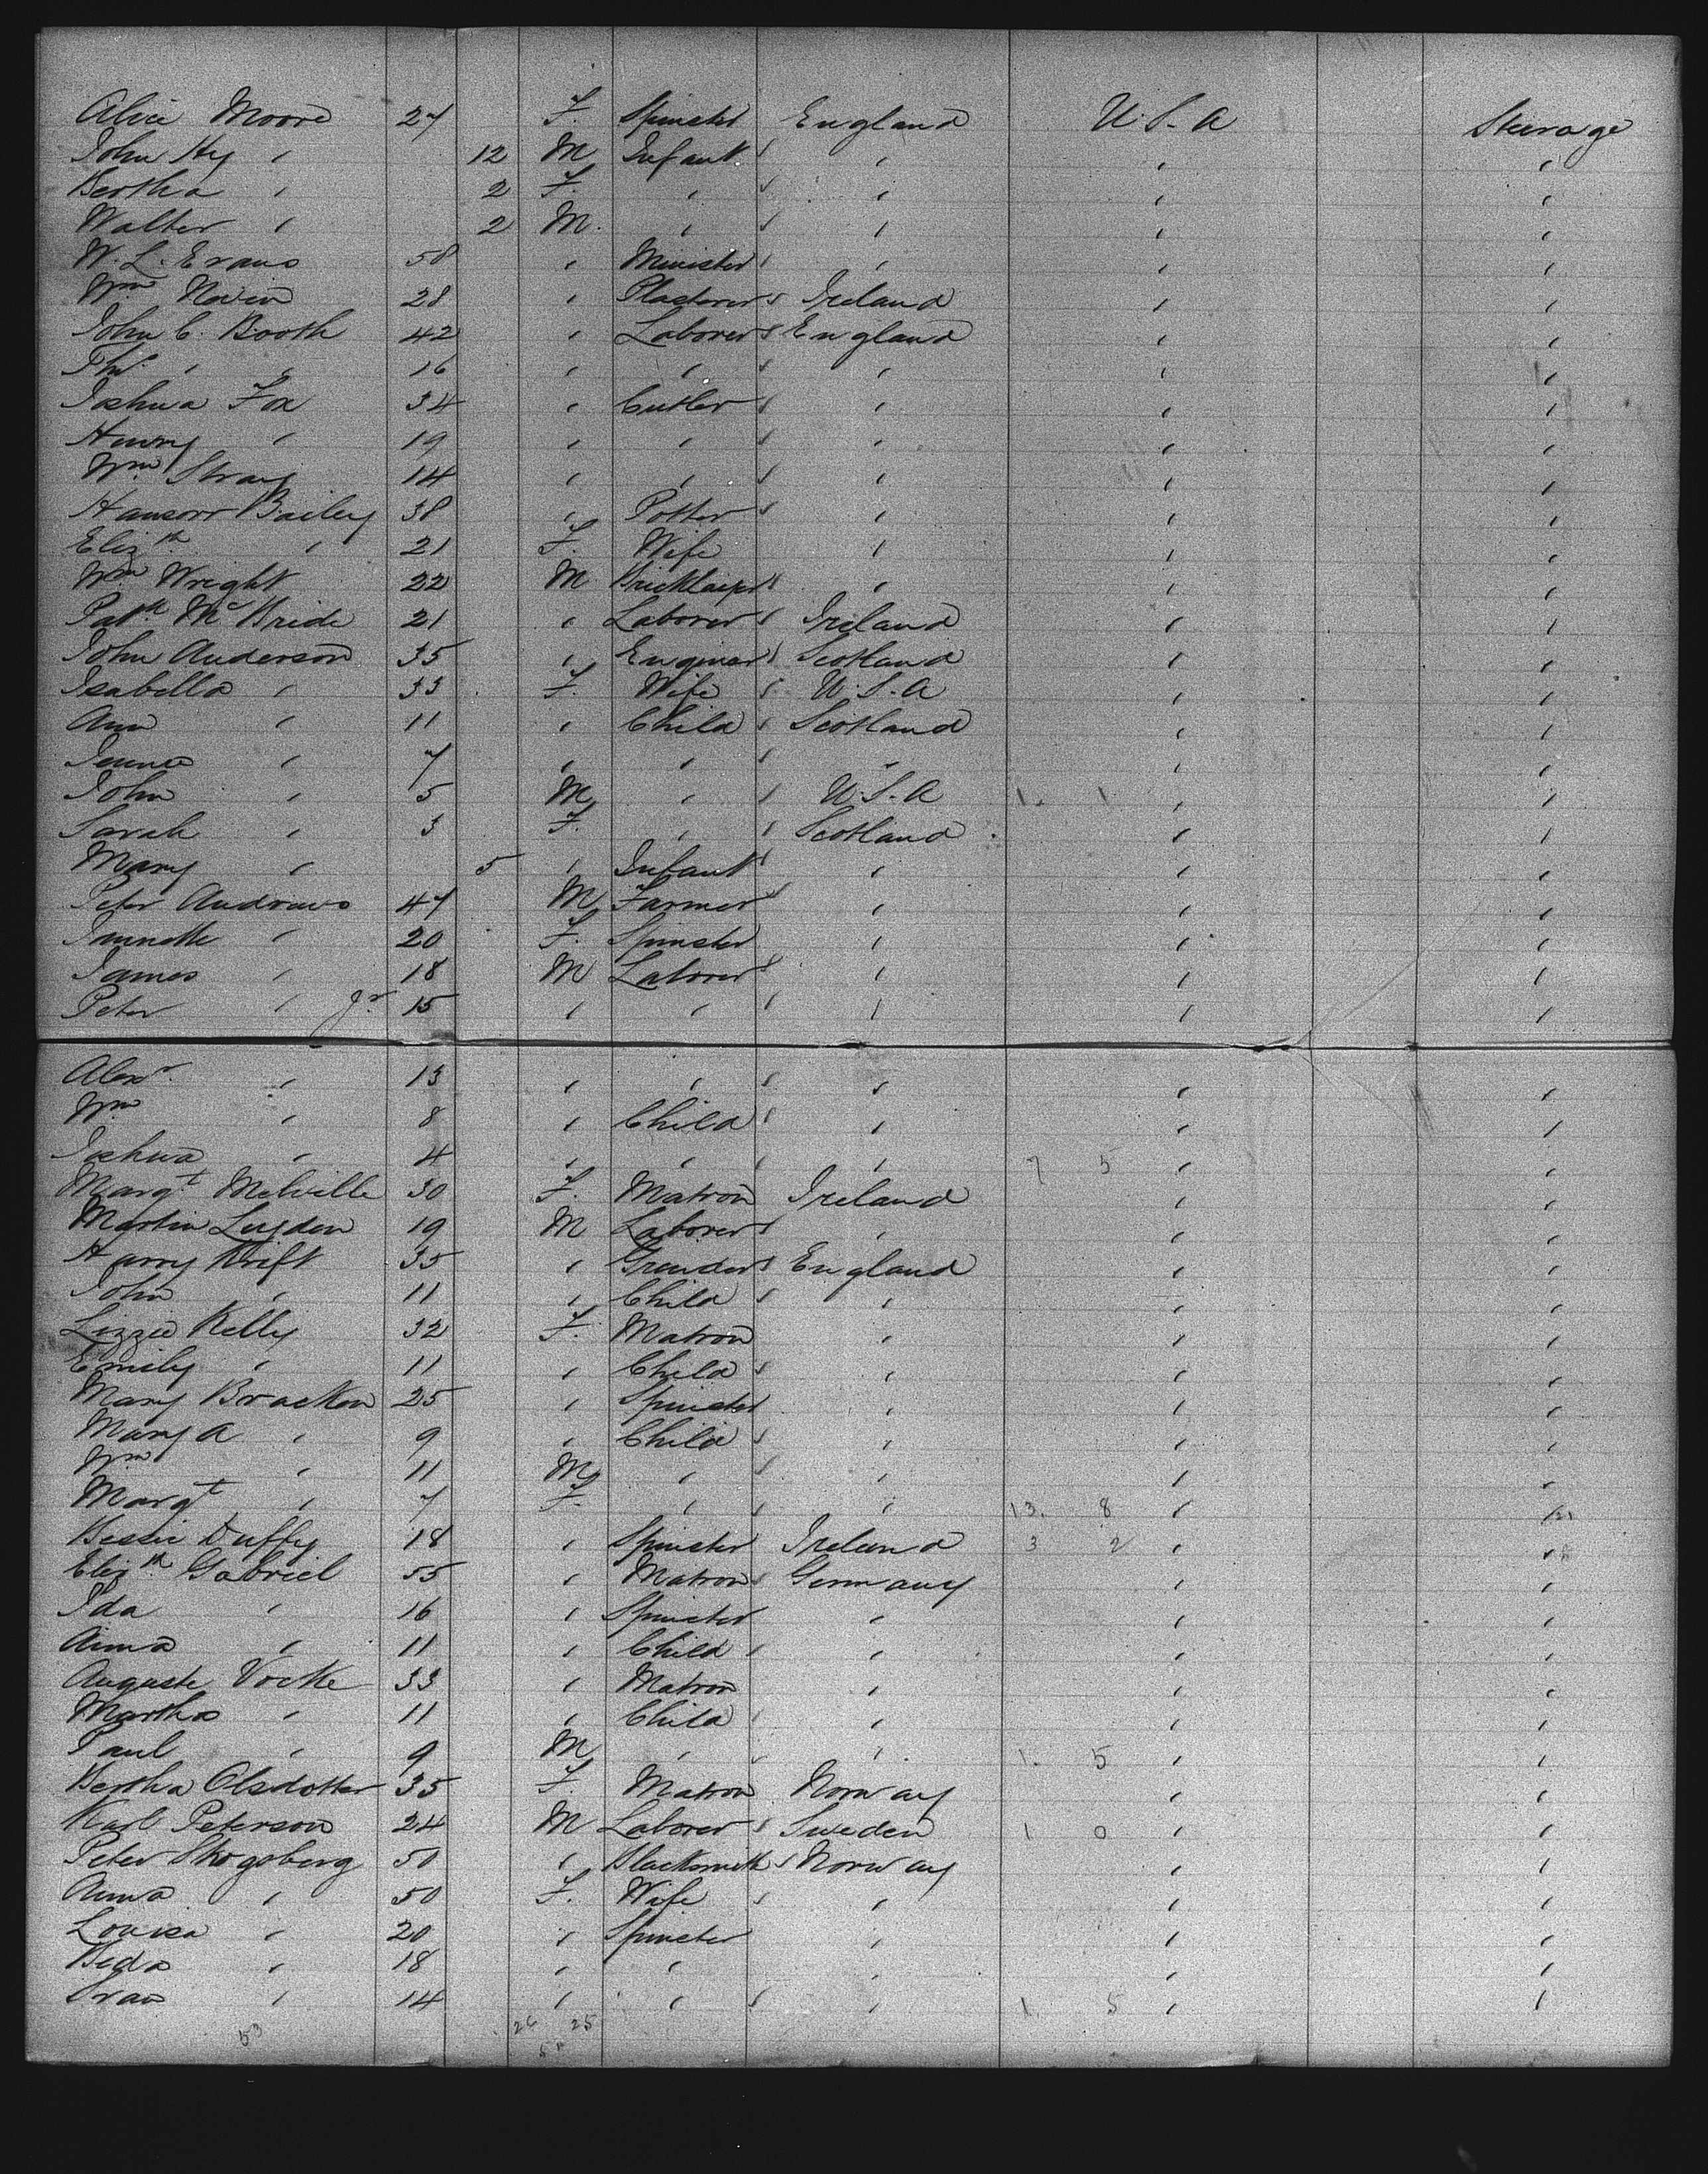 Alice Moore 27 F. Spinster England U.S.A Steerage
John Hy " 12 M Infant " " " "
Bertha " 2 F. " " " " "
Walter " 2 M. " " " " "
W. L. Evans 58 " Minister " " " "
Wm Nevin 28 " Plasterer " Ireland " "
John C. Booth 42 " Laborer " England " "
" 16 " " " " " "
Joshua Fox 34 " Cutler " " " "
Henry " 19 " " " " " "
Wm Stray 14 " " " " " "
Hanson Bailey 38 " Potter " " " "
Elizth " 21 F. Wife " " "
Wm Wright 22 M Bricklayer " " " "
Patk McBride 21 " Laborer " Ireland " "
John Anderson 35 " Engineer " Scotland " "
Isabella " 33 F. Wife " U.S.A " "
Ann " 11 " Child " Scotland " "
" 7 " " " " " "
John " 5 M " " U.S.A 1. 1 " "
Sarah " 3 F. " " Scotland " "
Mary " 5 " Infant " " " "
Peter Andrews 47 M Farmer " " " "
Jannette " 20 F. Spinster " " "
James " 18 M Laborer " " " "
Peter " Jr 15 " " " " " "
Alexr " 13 " " " " " "
Wm " 8 " Child " " " "
Joshua " 4 " " " " 7 5 " "
Margt Melville 30 F. Matron Ireland " "
Martin Luyden 19 M Laborer " " " "
Harry Krift 35 " Grinder " England " "
John " 11 " Child " " " "
Lizzie Kelly 32 F. Matron " " "
Emily " 11 " Child " " " "
Mary Bracken 25 " Spinster " " "
Mary A " 9 " Child " " " "
Wm " 11 M " " " " "
Margt " 7 F. " " " 13. 8 " "
Bessie Duffy 18 " Spinster Ireland 3 2 " "
Elizth Gabriel 55 " Matron " Germany " "
Ida " 16 " Spinster " " "
Anna " 11 " Child " " " "
Auguste Vocke 33 " Matron " " "
Martha " 11 " Child " " " "
Paul " 9 M " " " 1. 5 " "
Bertha Olsdotter 35 F Matron Norway " "
Karl Peterson 24 M Laborer " Sweden 1 0 " "
Peter Skogsberg 50 " Blacksmith " Norway " "
Anna " 50 F. Wife " " " "
Louisa " 20 " Spinster " " "
Beda " 18 " " " " "
" 14 " " " " 1. 5 " "
53 26 25